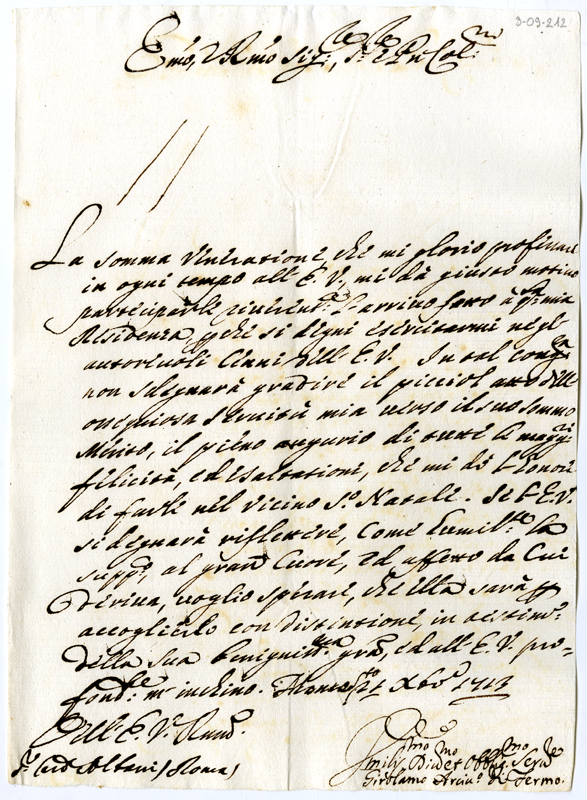 3-09-212
Emo, e Rmo Sig.re, Sig.re e Pñ Col.mo
La somma Venerazione, che mi glorio professare
in ogni tempo all' E. V., mi dà giusto motivo
participarle l'arrivo fatto à q.sta mia
Residenza, che si degni esercitarmi negl'
autorevoli Cenni dell' E. V. In tal cong.ra
non sdegnarà gradire il picciol atto dell'
ossequiosa Servitù mia verso il suo sommo
Merito, il pieno augurio di tutte le magg.ri
felicità, ed esaltazioni, che mi dò l'honore
di farle nel vicino S.o Natale. Se l'E. V.
si degnarà riflettere, come humil.te la
supp.co, al gran Cuore, ed affetto da Cui
deriva, voglio sperare, che ella sarà p
accoglierlo con distinzione, in
della sua benigniss.ma graã, ed all' E. V. pro-
fond.te m'inchino. 24 Xbre 1713
Dell' E. V. Reuñ.
S.r Card Albani / Roma /
Humilis.mo Divot.mo Obblig.mo Ser.re
Girolamo Arciv.o di Fermo.